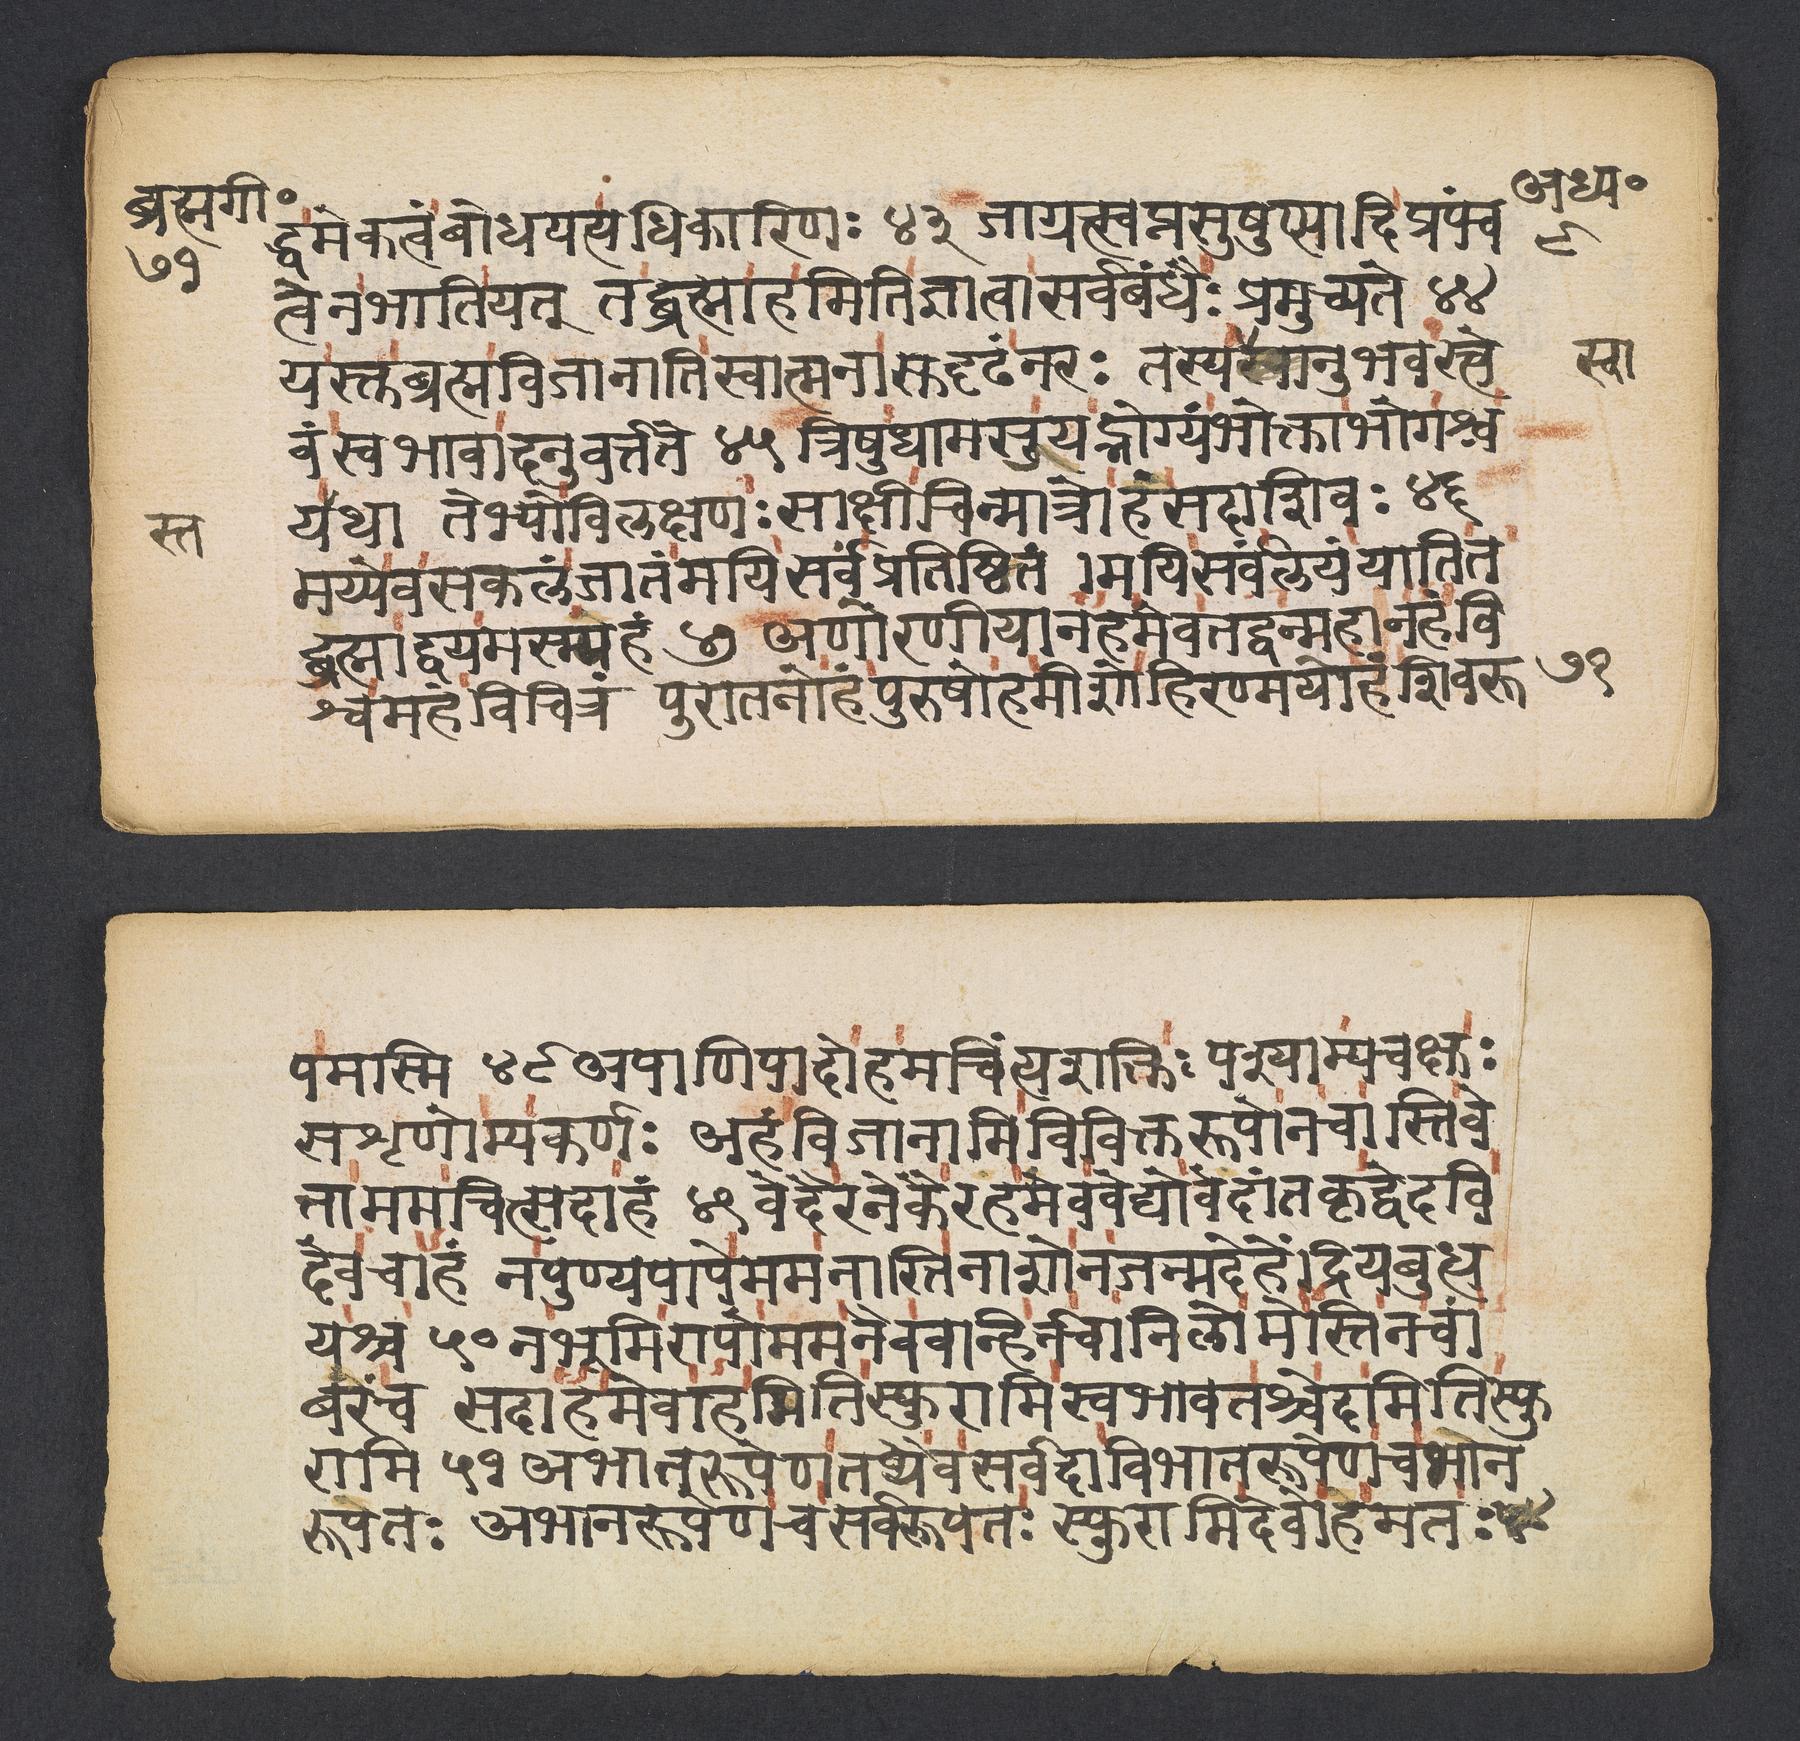 ब्रह्मगी॰
७१
अध्य॰
९
द्धमेकत्वंबोधयत्यधिकारिणः ४३ जाग्रत्स्वप्नसुषुप्त्यादिप्रपंच
त्वेनभातियत् तद्ब्रह्माहमितिज्ञात्वासर्वबंधैः प्रमुच्यते ४४
यस्तब्रह्मविजानातिस्वात्मनासदृढंनरः तस्यस्वानुभवस्त्वे
स्वा
वंस्वभावादनुवर्त्तते ४५ त्रिषुधामसुयद्भोग्यंभोक्ताभोगश्च
यथा तेभ्योविलक्षणःसाक्षीचिन्मात्रोहंसदाशिवः ४६
स्त
मय्येवसकलंजातंमयिसर्वंप्रतिष्ठितं ।मयिसर्वंलयंयातित
द्ब्रह्माद्वयमस्म्यहं ४७ अणोरणीयानहमेवतद्वन्महानहंवि
श्वमहंविचित्रं पुरातनोहंपुरुषोहमीशोहिरण्मयोहंशिवरू
७१
पमास्मि ४८ अपाणिपादोहमचिंत्यशक्तिः पश्याम्यचक्षुः
सशृणोम्यकर्णः अहंविजानामिविविक्तरूपोनचास्तिवे
त्ताममचित्सदाहं ४९ वेदैरनेकैरहमेववेद्योवेदांतकृद्वेदवि
देवचाहं नपुण्यपापेममनास्तिनाशोनजन्मदेहेंद्रियबुध्य
यश्च ५० नभूमिरापोममनैववान्हिर्नचानिलोमेस्तिनचां
बरंच सदाहमेवाहमितिस्फुरामिस्वभावतश्चेदमितिस्फु
रामि ५१ अभातरूपेणतथैवसर्वदाविभातरूपेणचभान
रूपतः अभानरूपेणचसर्वरूपतः स्फुरामिदेवोहमतः